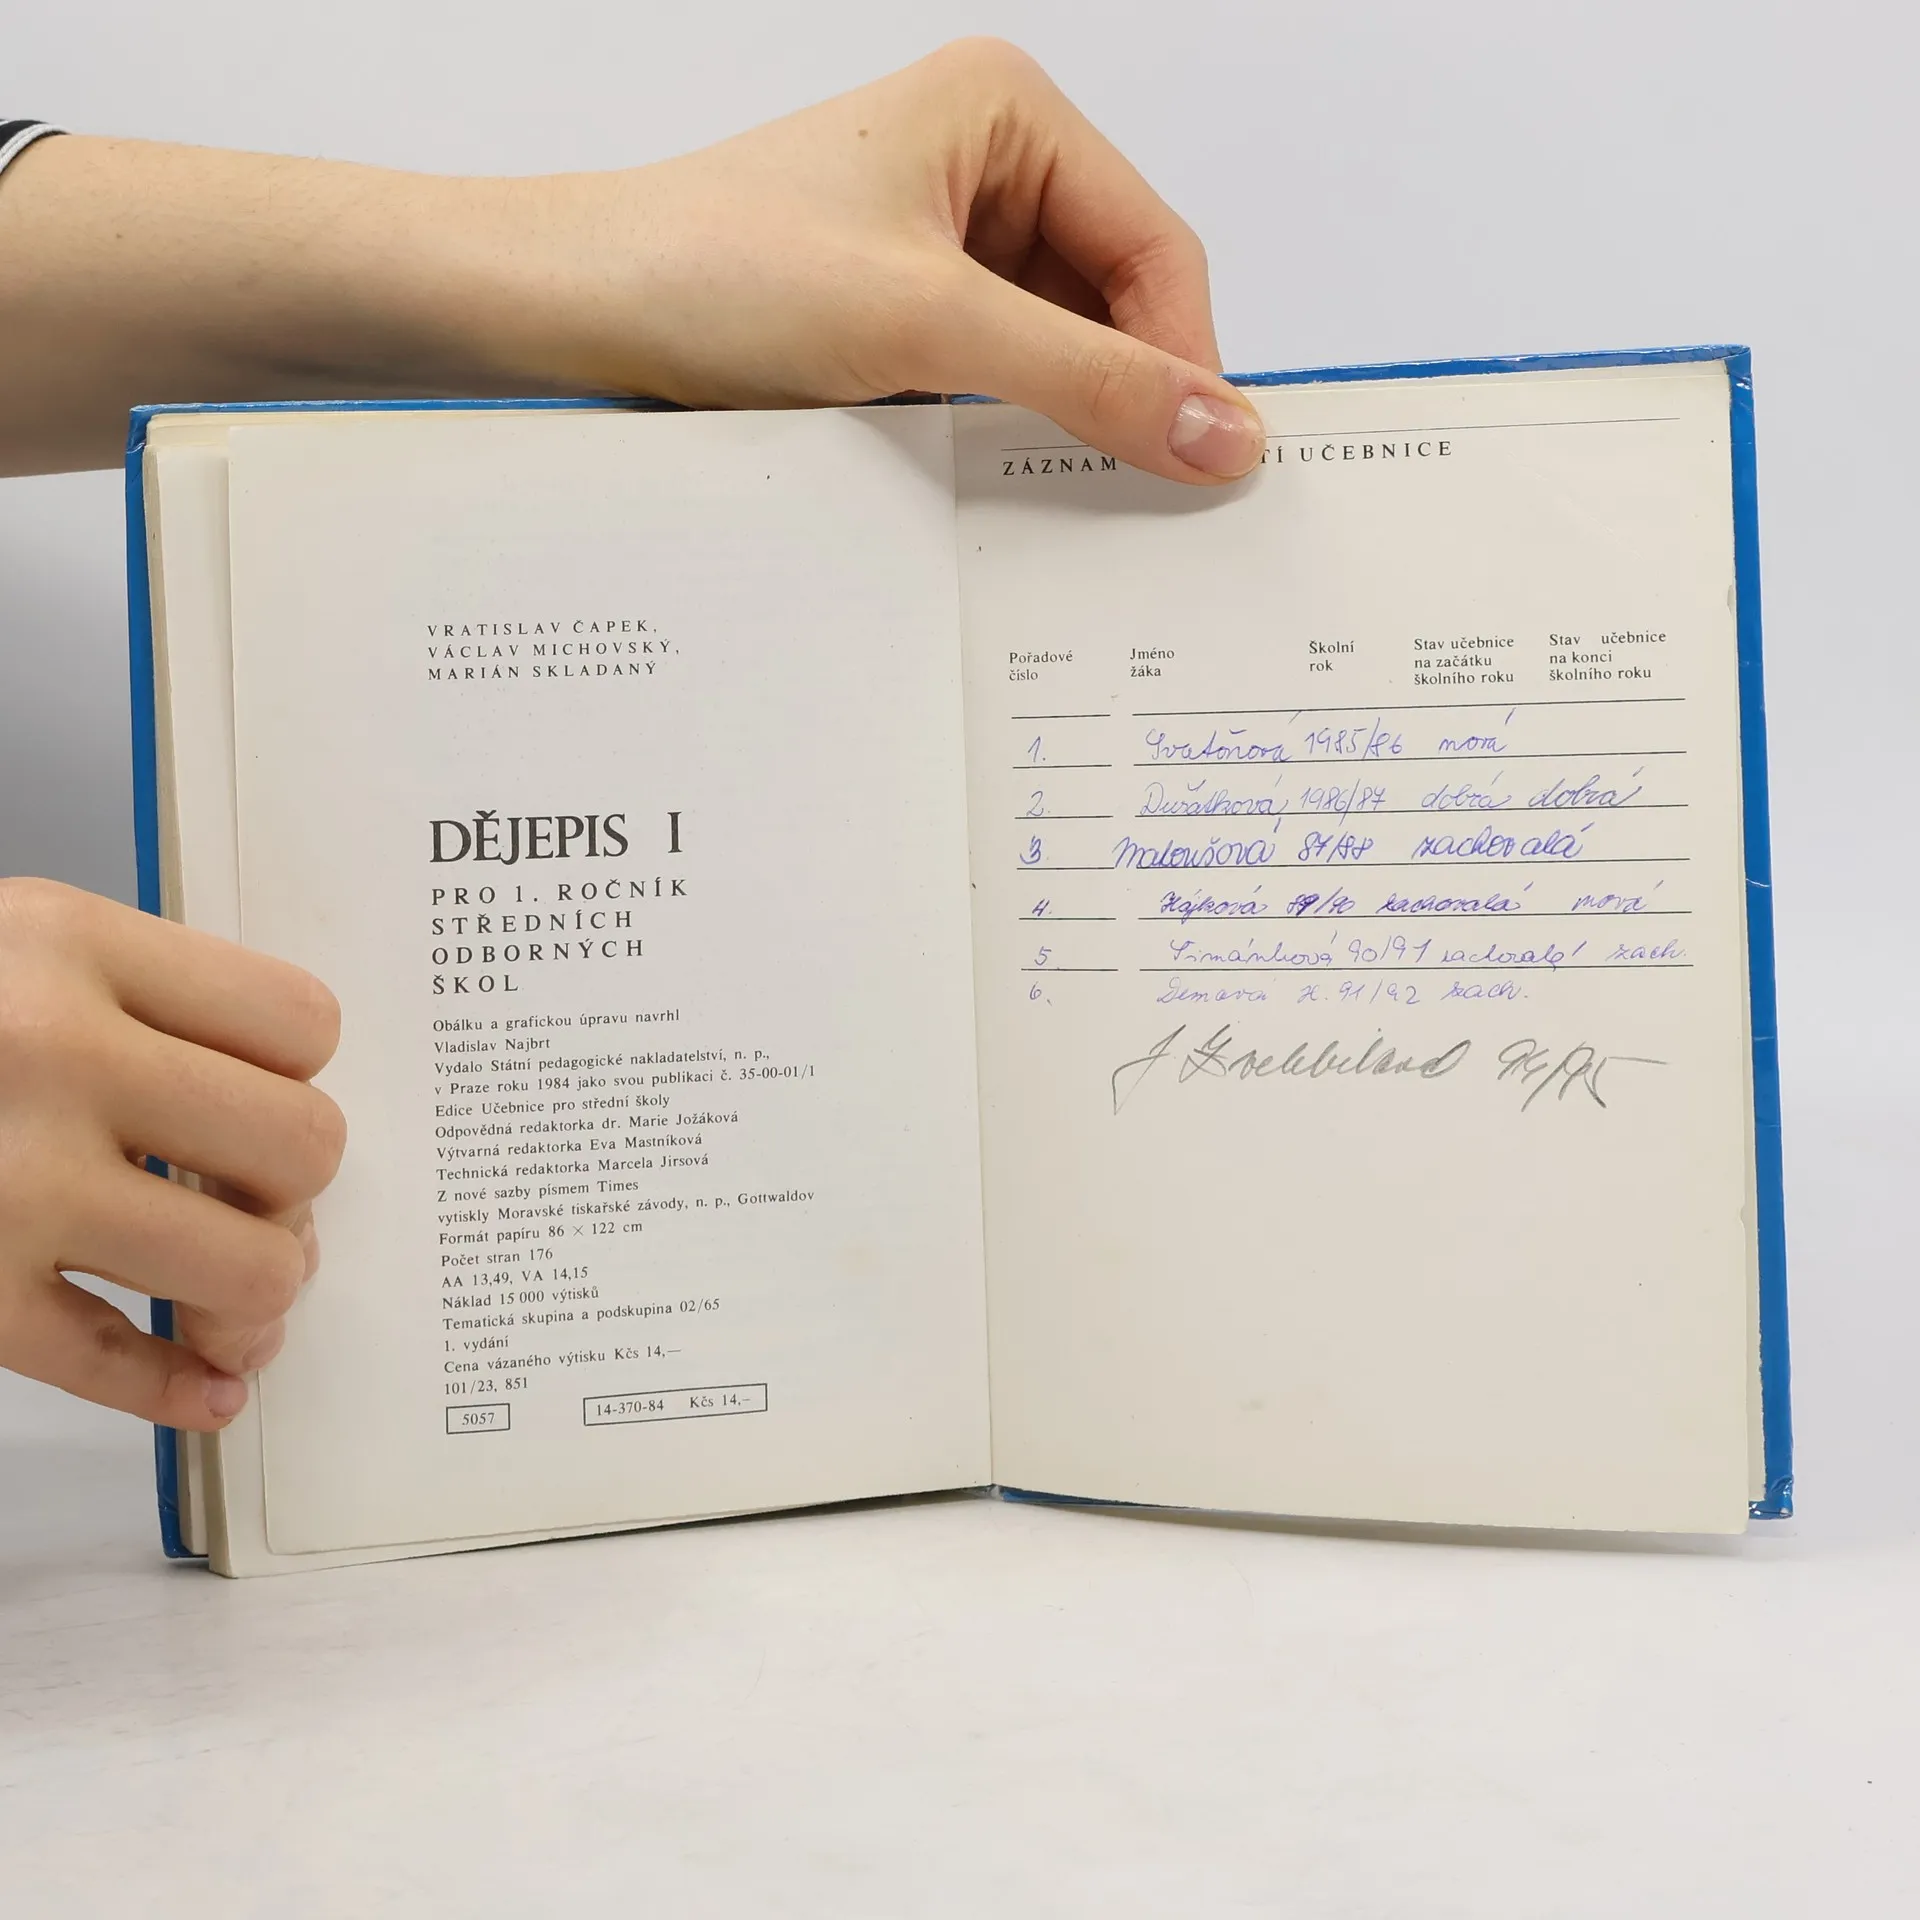 VRATISLAV ČAPEK,
VÁCLAV MICHOVSKÝ,
MARIÁN SKLADANÝ
DĚJEPIS I
PRO 1. ROČNÍK
STŘEDNÍCH
ODBORNÝCH
ŠKOL
Obálku a grafickou úpravu navrhl
Vladislav Najbrt
Vydalo Státní pedagogické nakladatelství, n. p.,
v Praze roku 1984 jako svou publikaci č. 35-00-01/1
Edice Učebnice pro střední školy
Odpovědná redaktorka dr. Marie Jožáková
Výtvarná redaktorka Eva Mastníková
Technická redaktorka Marcela Jirsová
Z nové sazby písmem Times
vytiskly Moravské tiskařské závody, n. p., Gottwaldov
Formát papíru 86 × 122 cm
Počet stran 176
AA 13,49, VA 14,15
Náklad 15 000 výtisků
Tematická skupina a podskupina 02/65
1. vydání
Cena vázaného výtisku Kčs 14,—
101/23, 851
5057
14-370-84 Kčs 14,–
ZÁZNAM TÍ UČEBNICE
Pořadové číslo
Jméno žáka
Školní rok
Stav učebnice na začátku školního roku
Stav učebnice na konci školního roku
1. Svatoňová 1985/86 nová
2. Dušátková 1986/87 dobrá dobrá
3. Matoušová 87/88 zachovalá
4. Hájková 89/90 zachovalá nová
5 90/91 zachovalá zach.
6. Demová H. 91/92 zach.
J 94/95